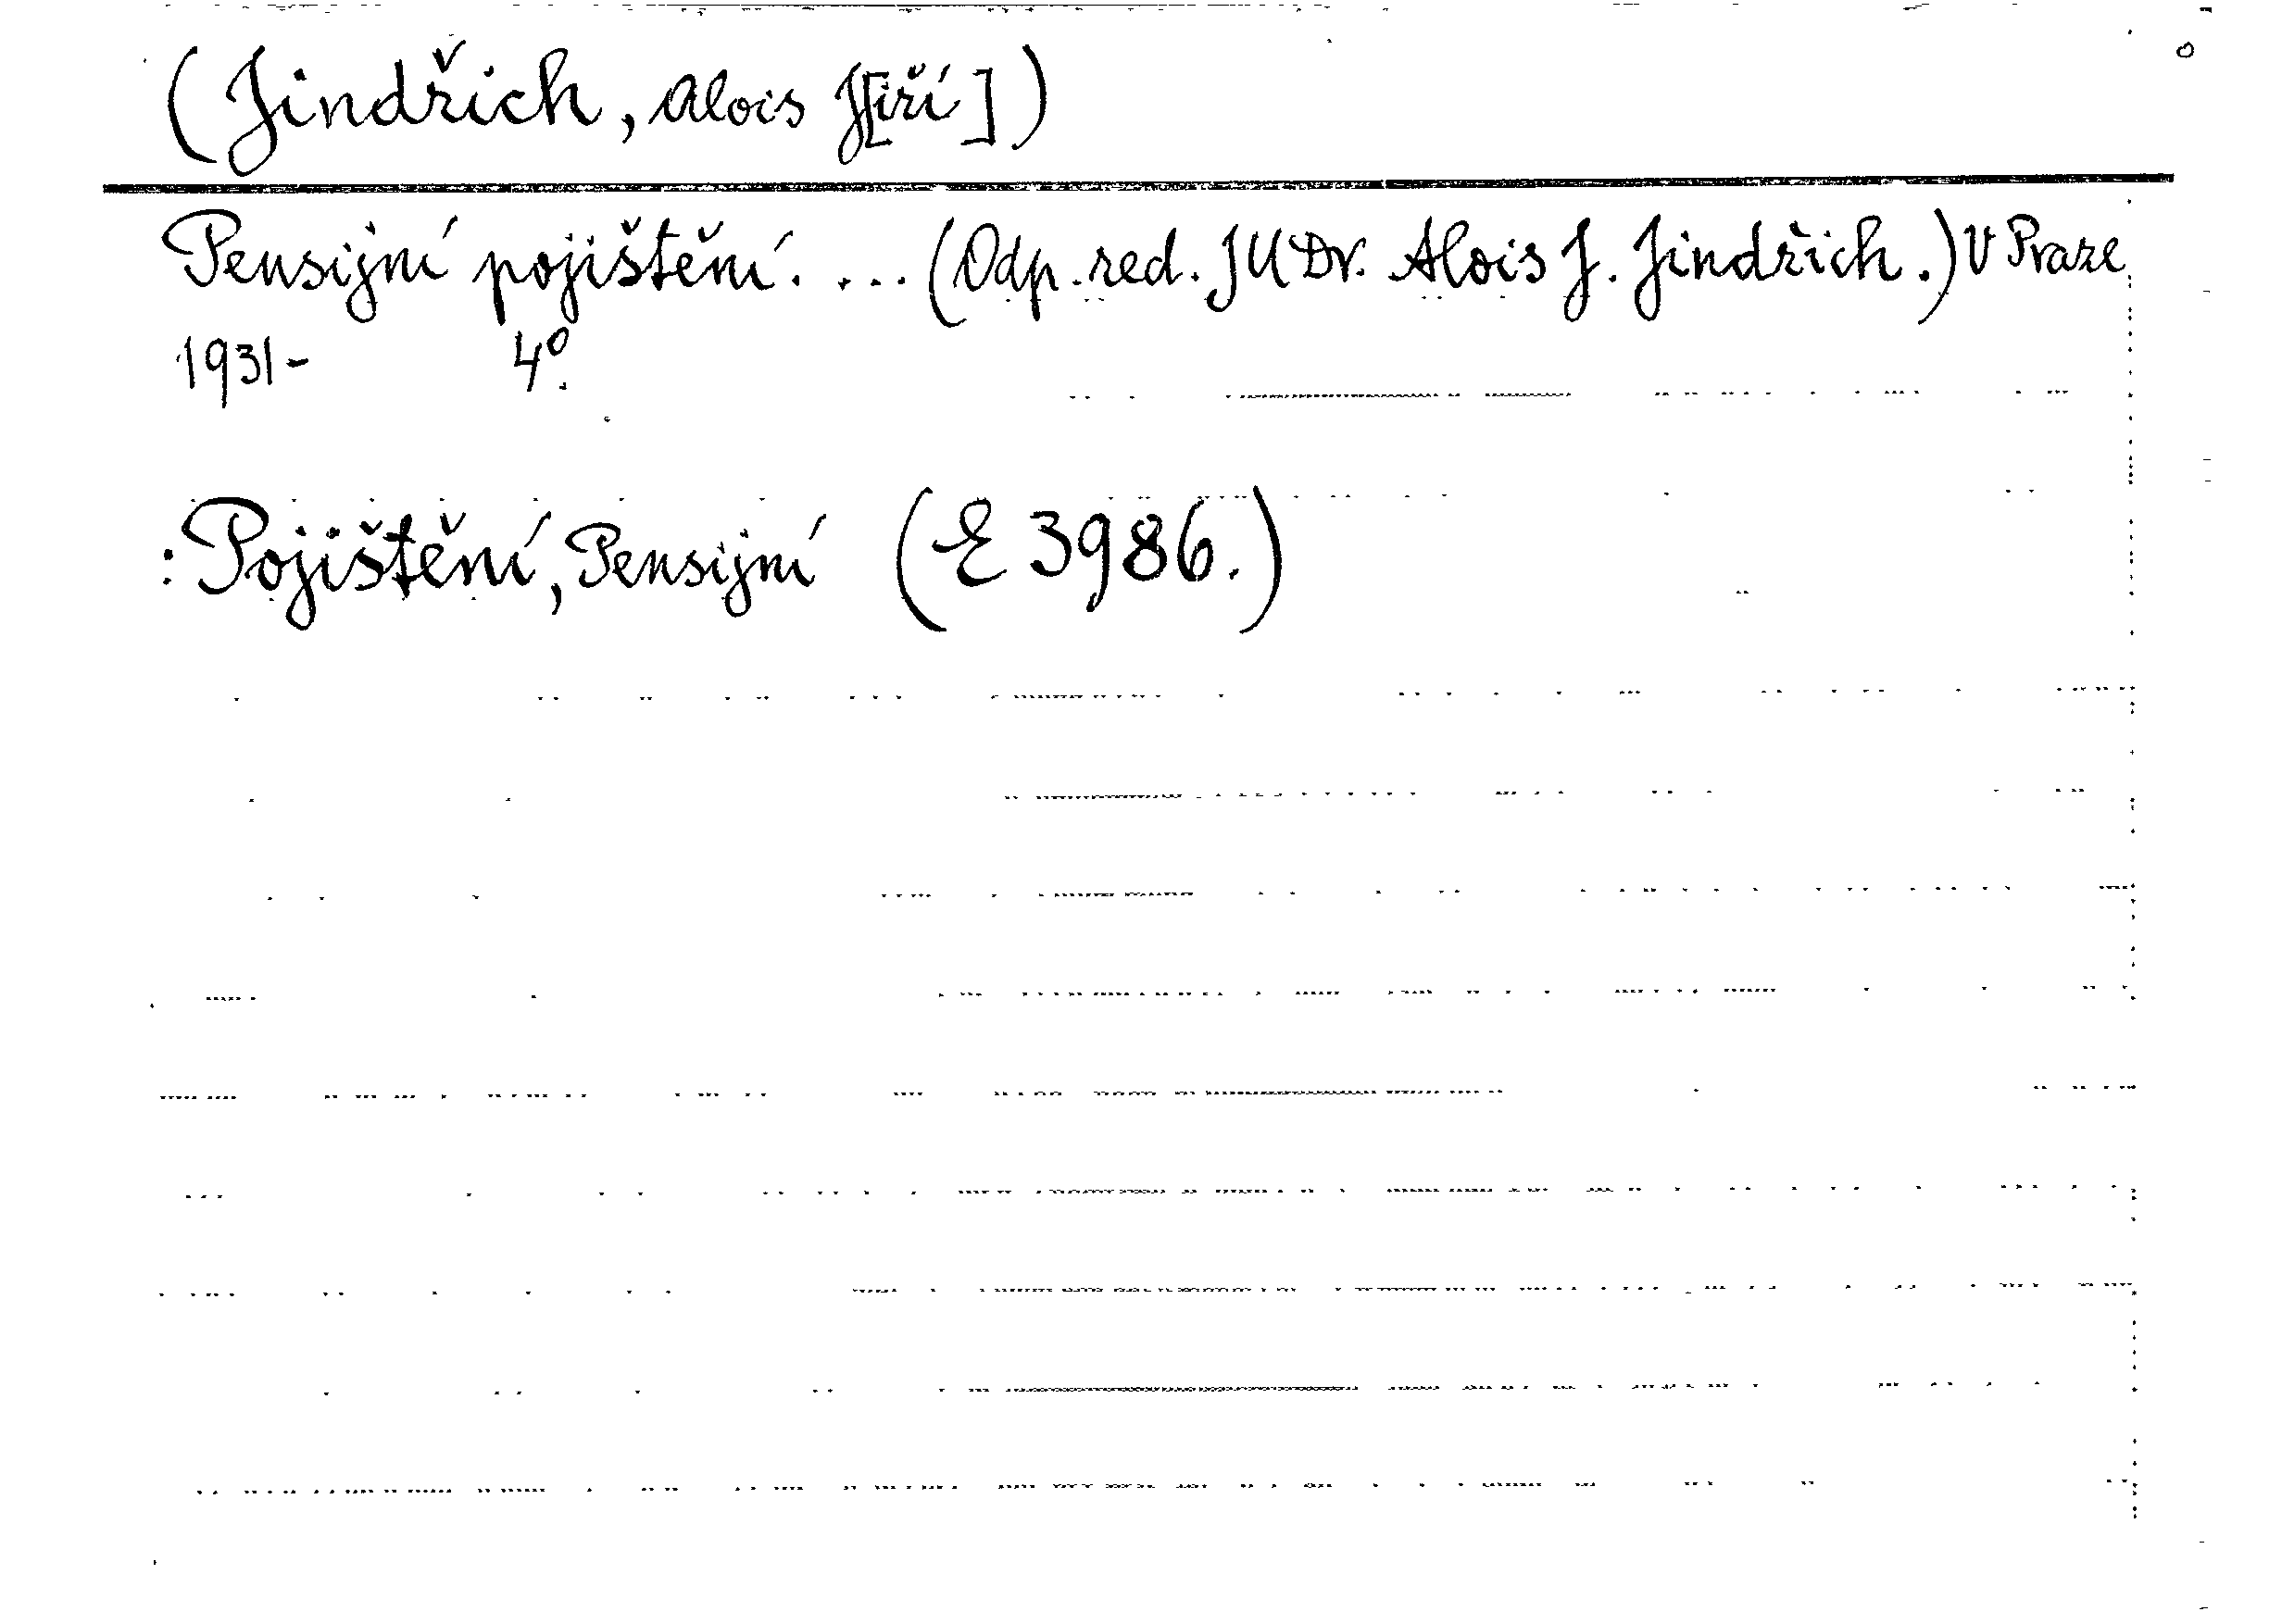 (Jindřich, Alois J[iří])
Pensijní pojištění. ... (Odp. red. JUDr. Alois J. Jindřich.) V Praze
1931- 4º.
: Pojištění, Pensijní (E 3986.)